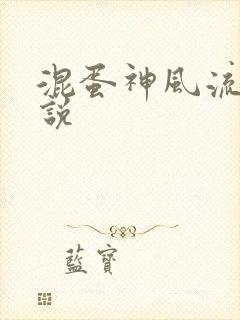 混蛋神風流
說
藍寶